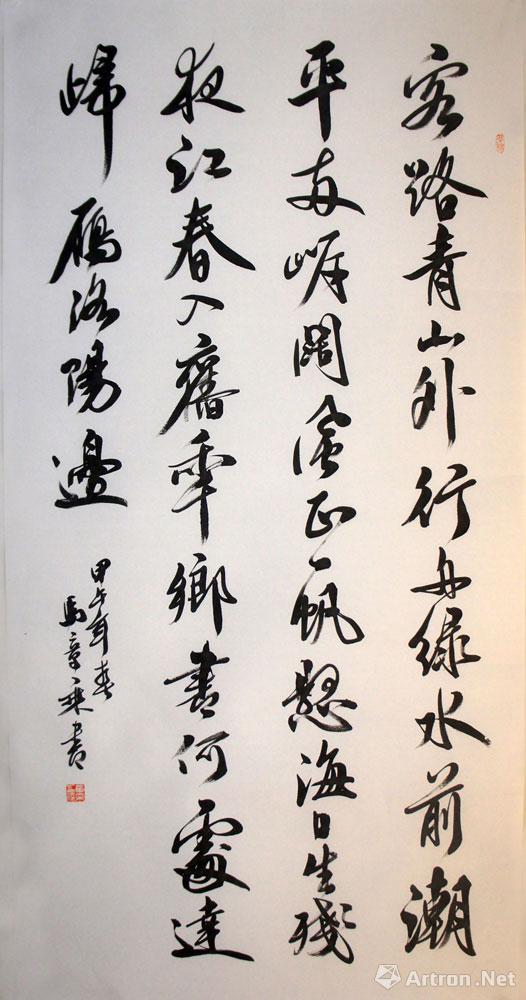 客路青山外行舟绿水前潮
平两岸阔风正一帆悬海日生残
夜江春入舊年鄉書何處達
歸雁洛陽邊
甲午年春
馬章乘書
Artron.Net